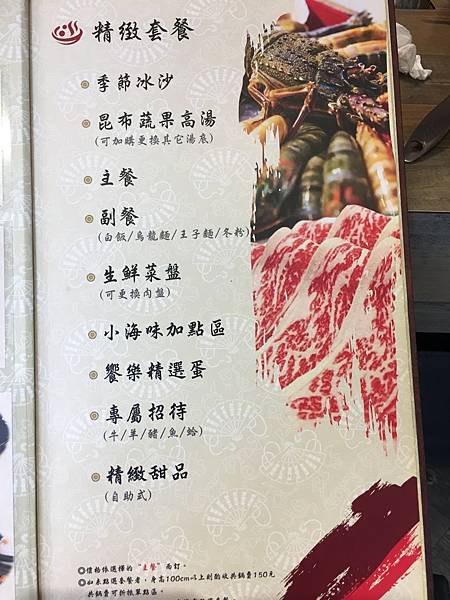 精緻套餐
季節冰沙
昆布蔬果高湯
(可加購更換其它湯底)
主餐
副餐
(白飯/烏龍麵/王子麵/冬粉)
生鮮菜盤
(可更換肉盤)
小海味加點區
饗樂精選蛋
專屬招待
(牛/羊/豬/魚/蛤)
精緻甜品
(自助式)
◎價格依選擇的“主餐”而訂。
◎如未點選套餐者，身高100cm以上則酌收共鍋費150元
共鍋費可折抵單點區。